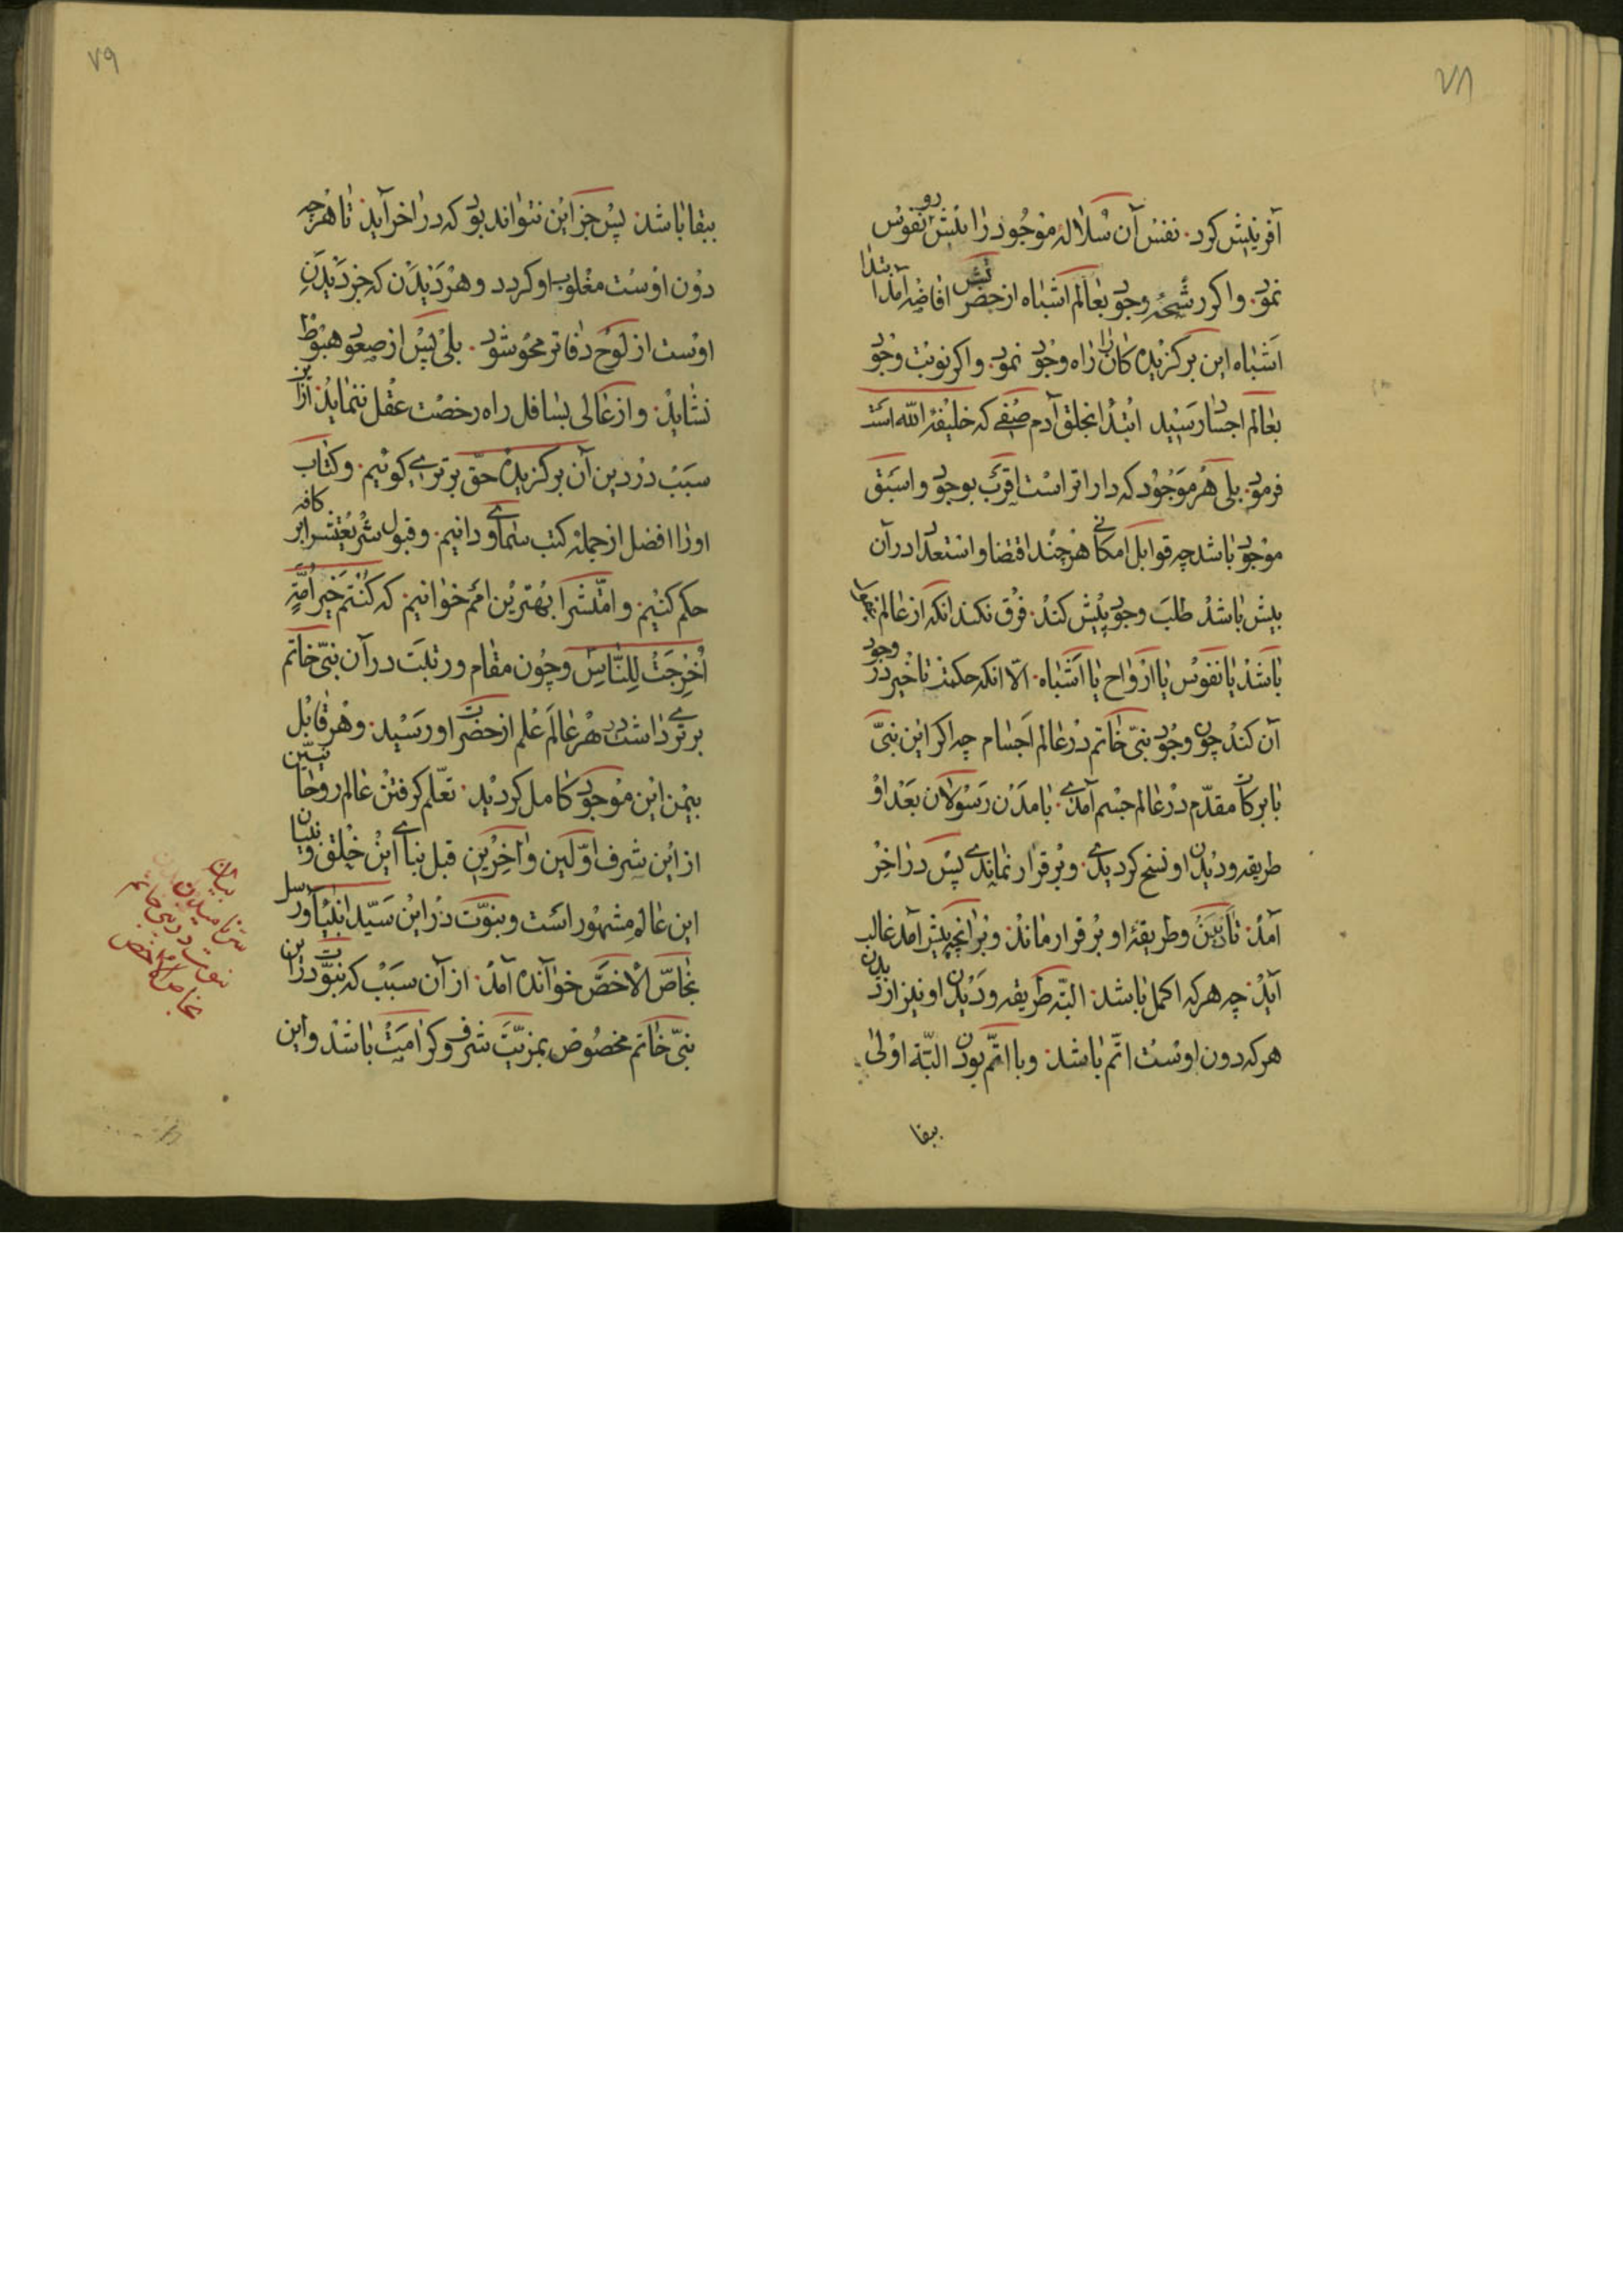 ٧٨
آفرینش کرد. نفس آن سلالهٔ موجود را پیش رو نفوس
نمود. واکر رشحهٔ وجود بعالم اشباه از حضرتش افاضه آمد ابتدا
اشباه این برکزیدهٔ کان را راه وجود نمود. واکر نوبت وجود
بعالم اجساد رسید ابتدا بخلق آدم صفی که خلیفة الله است
فرمود. بلی هر موجود که داراتر است اقرب بوجود واسبق
موجود باشد چه قوابل امکانی هر چند اقتضا واستعداد در آن
بیش باشد طلب وجود پیش کند. فرق نکند انکه از عالم
باشد یا نفوس یا ارواح یا اشباه. الا انکه حکمت تاخیر در وجود
آن کند چون وجود نبی خاتم در عالم اجسام چه اکر این نبی
با برکات مقدم در عالم جسم آمدی. بامدن رسولان بعد او
طریقه ودین او نسخ کردیدی. وبر قرار نماندی پس در آخر
آمد. تا دین وطریقهٔ او بر قرار ماند. وبر انچه پیش آمد غالب
آید. چه هر که اکمل باشد. البته طریقه ودین او نیز از دین
هر که دون اوست اتم باشد. وبا اتم بودن البته اولی
ببقا
٧٩
ببقا باشد. پس جز این نتواند بود که در اخر آید. تا هر چه
دون اوست مغلوب او کردد وهر دیدن که جز دیدن
اوست از لوح دفاتر محو شود. بلی پس از صعود هبوط
نشاید. واز عالی بسافل راه رخصت عقل ننماید. از این
سبب در دین آن برکزیدهٔ حق برتری کوئیم. وکتاب
اورا افضل از جمله کتب سماوی دانیم. وقبول شریعتش را بر کافه
حکم کنیم. وامتش را بهترین امم خوانیم. که کنتم خیر أمة
أخرجت للناس وچون مقام ورتبت در آن نبی خاتم
برتری داشت در هر عالم علم از حضرت او رسید. وهر قابل
بیمن این موجود کامل کردید. تعلم کرفتن عالم روحانیین
از این شرف اولین وآخرین قبل بنای این خلق وبنیان
این عالم مشهور است ونبوت در این سید انبیا ورسل
بخاص الاخص خوانده آمد. از آن سبب که نبوت در این
نبی خاتم مخصوص بمزیت شرف وکرامت باشد واین
بیان
نبوت در نبی خاتم
بخاص الاخص